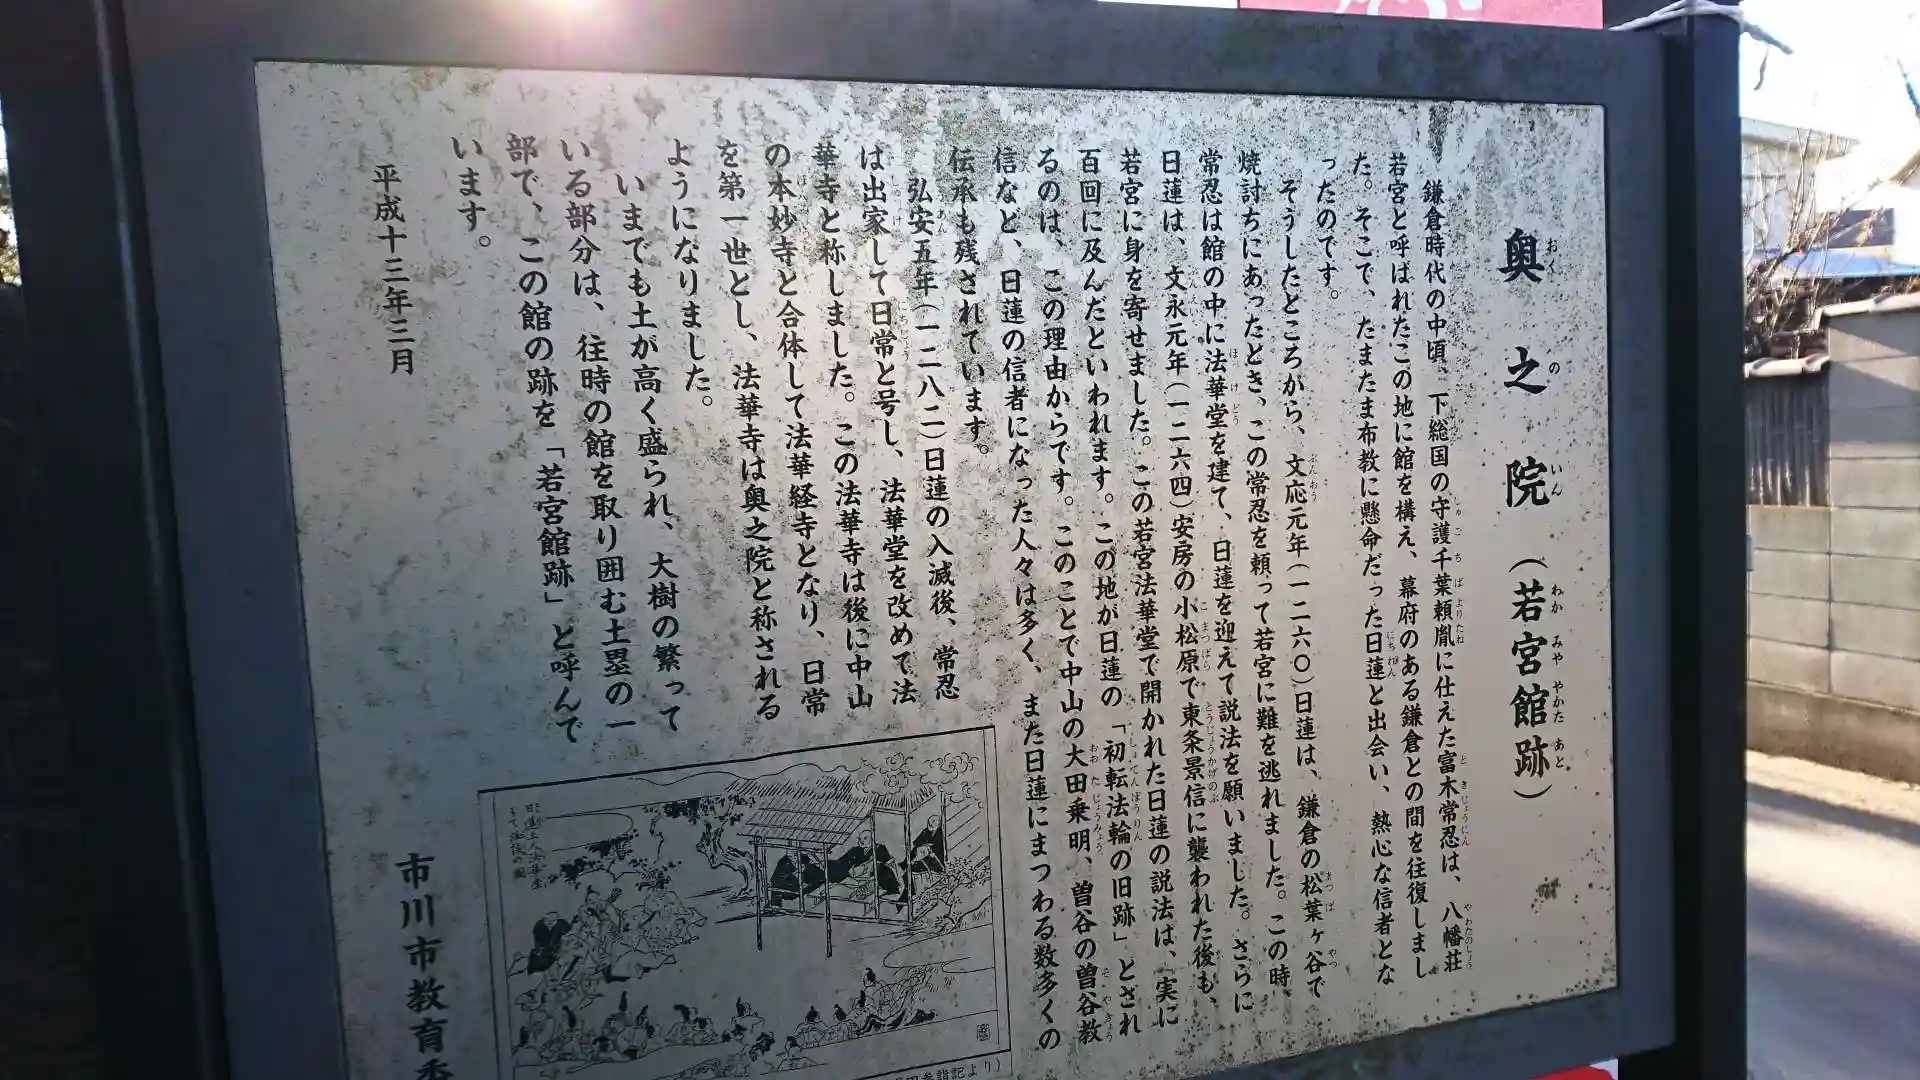 奥之院（若宮館跡）
鎌倉時代の中頃、下総国の守護千葉頼胤に仕えた富木常忍は、八幡荘
若宮と呼ばれたこの地に館を構え、幕府のある鎌倉との間を往復しまし
た。そこで、たまたま布教に懸命だった日蓮と出会い、熱心な信者とな
ったのです。
そうしたところから、文応元年（一二六〇）日蓮は、鎌倉の松葉ヶ谷で
焼討ちにあったとき、この常忍を頼って若宮に難を逃れました。この時、
常忍は館の中に法華堂を建て、日蓮を迎えて説法を願いました。さらに
日蓮は、文永元年（一二六四）安房の小松原で東条景信に襲われた後も、
若宮に身を寄せました。この若宮法華堂で開かれた日蓮の説法は、実に
百回に及んだといわれます。この地が日蓮の「初転法輪の旧跡」とされ
るのは、この理由からです。このことで中山の大田乗明、曽谷の曽谷教
信など、日蓮の信者になった人々は多く、また日蓮にまつわる数多くの
伝承も残されています。
弘安五年（一二八二）日蓮の入滅後、常忍
は出家して日常と号し、法華堂を改めて法
華寺と称しました。この法華寺は後に中山
の本妙寺と合体して法華経寺となり、日常
を第一世とし、法華寺は奥之院と称される
ようになりました。
いまでも土が高く盛られ、大樹の繁って
いる部分は、往時の館を取り囲む土塁の一
部で、この館の跡を「若宮館跡」と呼んで
います。
平成十三年三月
市川市教育委